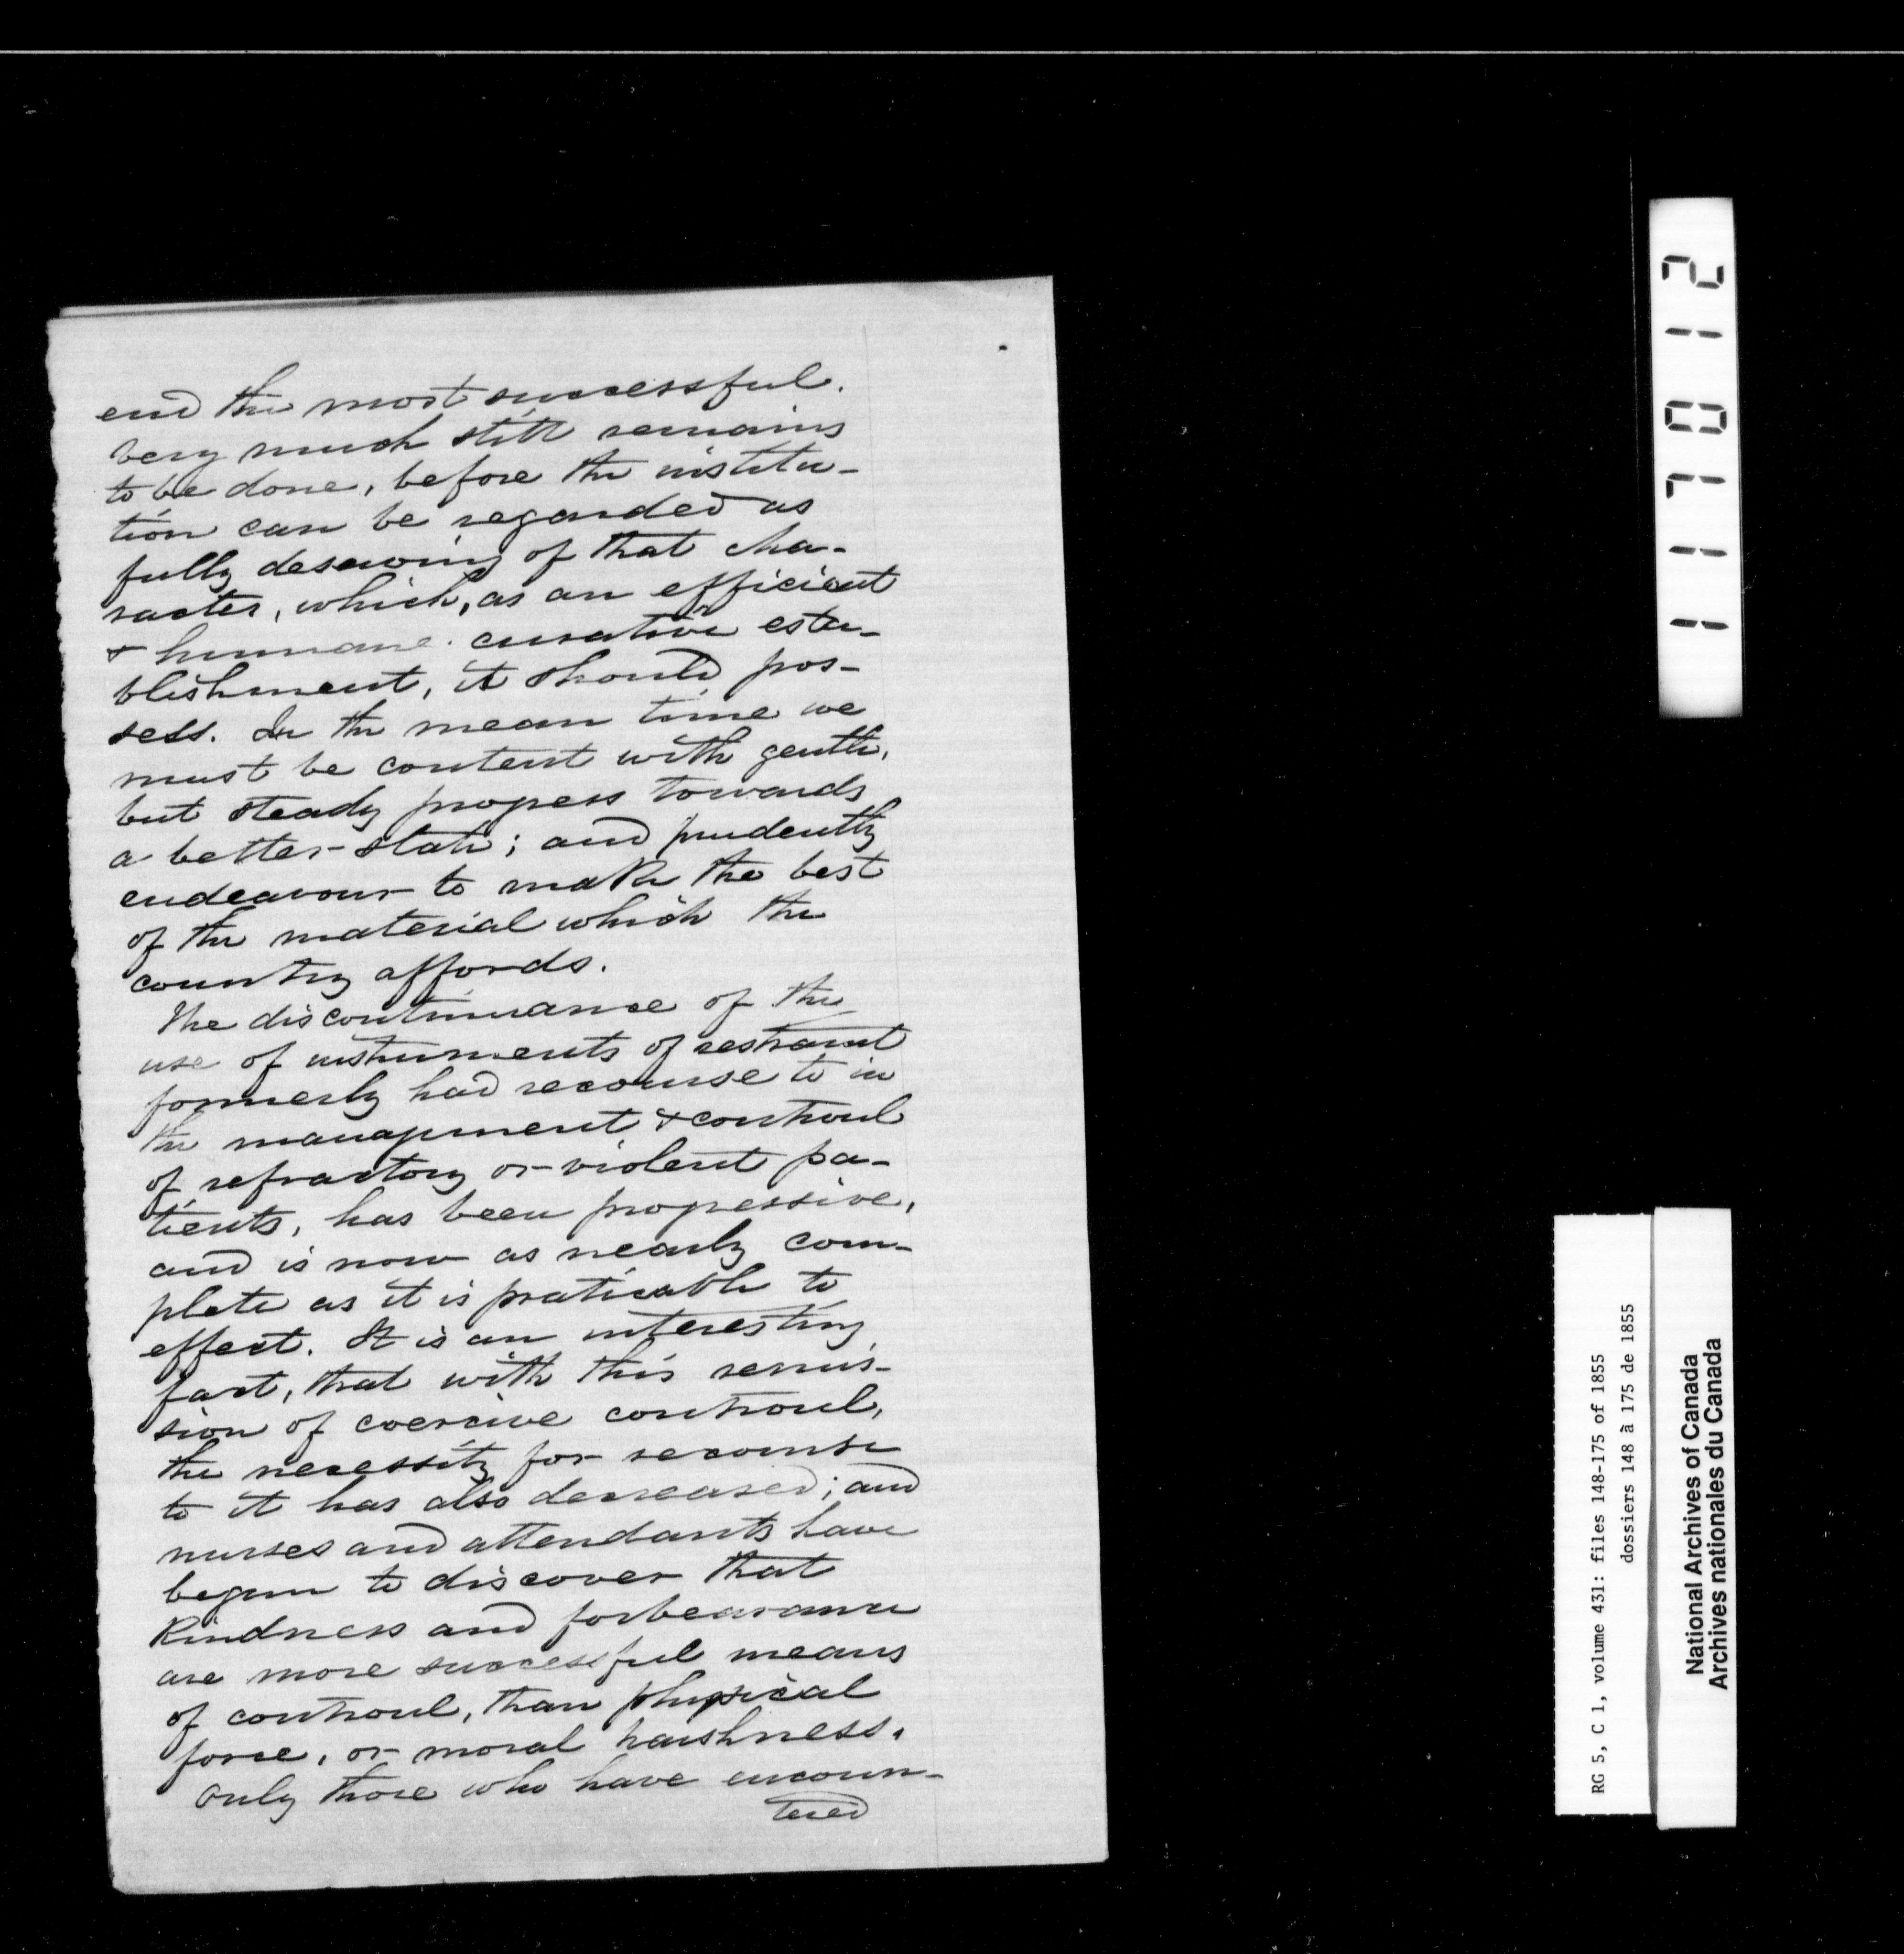 end the most successful.
Very much still remains
to be done, before the institu-
tion can be regarded as
fully deserving of that cha-
racter, which, as an efficient
& humane curative esta-
blishment, it should pos-
sess. In the mean time we
must be content with gentle,
but steady progress towards
a better state; and prudently
endeavour to make the best
of the material which the
country affords.
The discontinuance of the
use of instruments of restraint
formerly had recourse to in
the management & controul
of refractory or violent pa-
tients, has been progressive,
and is now as nearly com-
plete as it is praticable to
effect. It is an interesting
fact, that with this remis-
sion of coercive controul,
the necessity for recourse
to it has also decreased; and
nurses and attendants have
begun to discover that
kindness and forbearance
are more successful means
of controul, than physical
force, or moral harshness.
Only those who have encoun-
tered
1170112
RG 5, C 1, volume 431: files 148-175 of 1855
dossiers 148 à 175 de 1855
National Archives of Canada
Archives nationales du Canada